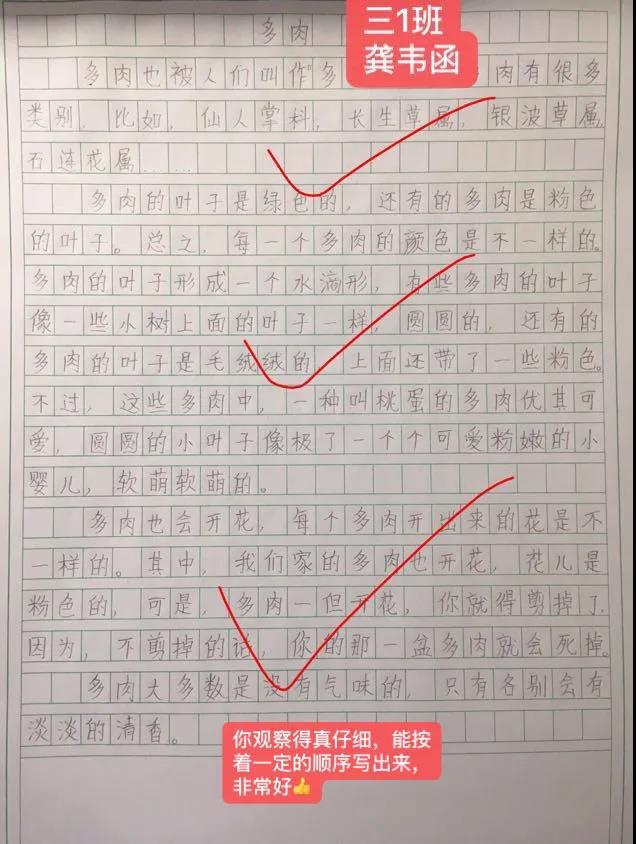 三1班
龚韦函
多肉
多肉也被人们叫作多肉有很多
类别，比如，仙人掌科，长生草属，银波草属，
石连花属……
多肉的叶子是绿色的，还有的多肉是粉色
的叶子。总之，每一个多肉的颜色是不一样的。
多肉的叶子形成一个水滴形，有些多肉的叶子
像一些小树上面的叶子一样，圆圆的，还有的
多肉的叶子是毛绒绒的，上面还带了一些粉色。
不过，这些多肉中，一种叫桃蛋的多肉优其可
爱，圆圆的小叶子像极了一个个可爱粉嫩的小
婴儿，软萌软萌的。
多肉也会开花，每个多肉开出来的花是不
一样的。其中，我们家的多肉也开花，花儿是
粉色的，可是，多肉一但开花，你就得剪掉了，
因为，不剪掉的话，你的那一盆多肉就会死掉。
多肉大多数是没有气味的，只有各别会有
淡淡的清香。
你观察得真仔细，能按
着一定的顺序写出来，
非常好👍